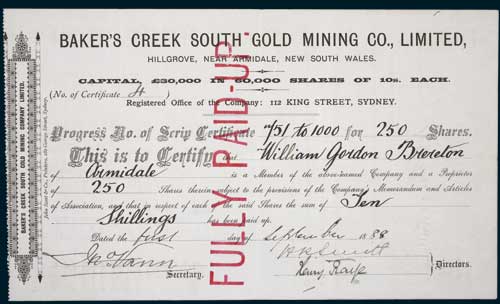 BAKER'S CREEK SOUTH GOLD MINING CO., LIMITED,
HILLGROVE, NEAR ARMIDALE, NEW SOUTH WALES.
CAPITAL, £30,000 IN 60,000 SHARES OF 10s. EACH.
(No. of Certificate 4 )
Registered Office of the Company: 112 KING STREET, SYDNEY.
Progress No. of Scrip Certificate 751 to 1000 for 250 Shares.
This is to Certify that William Gordon Brereton
of Armidale is a Member of the above-named Company and a Proprietor
of 250 Shares therein subject to the provisions of the Company's Memorandum and Articles
of Association, and that in respect of each of the said Shares the sum of Ten
Shillings has been paid up.
Dated the first day of September 1888
Secretary.
Henry
Directors.
FULLY PAID-UP.
BAKER'S CREEK SOUTH GOLD MINING COMPANY LIMITED.